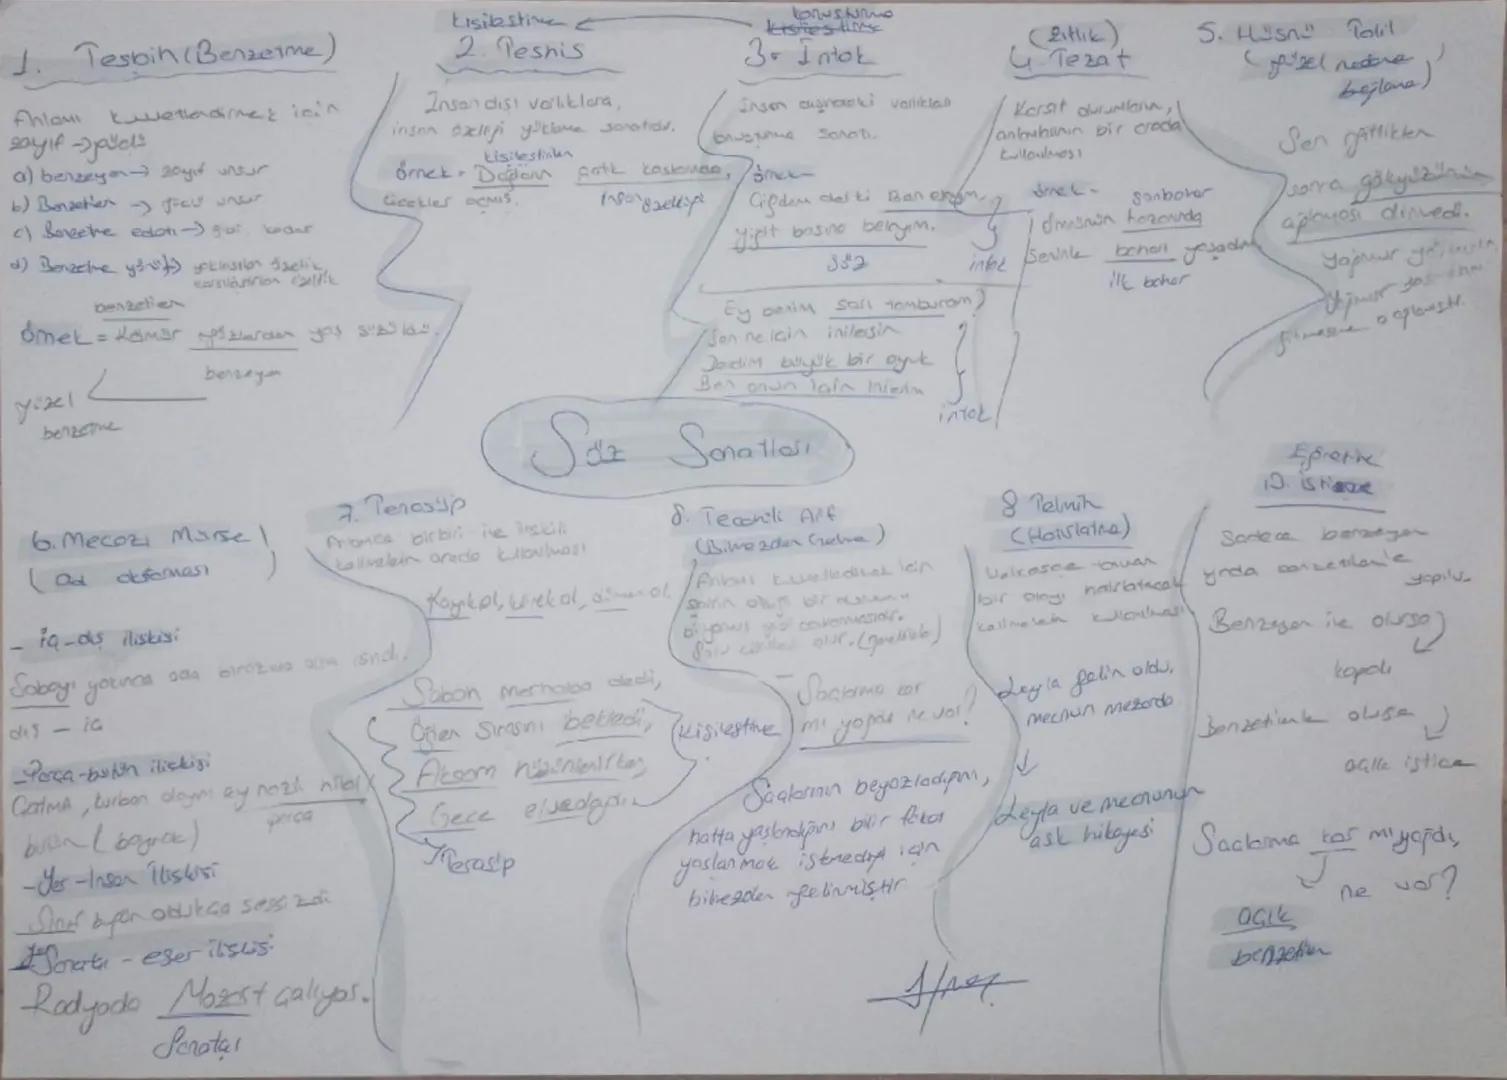 1. Teşbih (Benzetme)
Anlamı kuvvetlendirmek için
zayıf → güçlü
a) benzeyen → zayıf unsur
b) Benzetilen → güçlü unsur
c) Benzetme edatı → gibi, kadar
d) Benzetme yönü →
benzetilen
örnek = Kömür gözlerden yaş süzüldü.
benzeyen
güzel
benzetme
kişileştirme
2. Teşhis
İnsan dışı varlıklara,
insan özelliği yükleme sanatıdır.
kişileştirilen
örnek = Dağların artık kaşlarında,
Çicekler açmış.
insan özelliği
konuşturma
3. İntak
İnsan dışındaki varlıkları
konuşturma sanatı.
örnek
Çiğdem der ki Ben elayım,
yiğit başına belayım.
söz
intak
Ey benim sarı tamburam
Sen ne için inilersin
İçim büyük bir oyuk
Ben onun için inlerim
intak
(Zıtlık)
4. Tezat
Karşıt durumların,
anlamların bir arada
kullanılması
örnek =
sonbahar
ömrünün hazanında
Seninle baharı yaşadım
ilk bahar
5. Hüsnü Talil
(güzel nedene
bağlama)
Sen gittikten
sonra gökyüzünün
ağlaması dinmedi.
Söz Sanatları
6. Mecazı Mürsel
(ad aktarması)
- iç-dış ilişkisi
Sobayı yakınca oda biraz ısındı.
dış - iç
- Parça-bütün ilişkisi
Çatma, kurban olayım ey nazlı hilal
parça
bütün (bayrak)
- Yer - İnsan İlişkisi
Sınıf bugün oldukça sessizdi
Sanatçı - eser ilişkisi
Radyoda Mozart çalıyor.
Sanatçı
7. Tenasüp
Anlamca birbiri ile ilişkili
kelimelerin arada kullanılması
Kayık ol, kürek ol, dümen ol.
Sabah merhaba dedi,
Öğlen sırasını bekledi,
Akşam hüzünlenirken,
Gece elvedağını
Kişileştirme
Tenasüp
8. Tecahüli Arif
(Bilmezden Gelme)
Anlamı kuvvetlendirmek için
şairin olduğu bir durumu
bilmiyormuş gibi davranmasıdır.
Soru cümlesi olur. (genellikle)
- Saçlarıma kar
mı yağdı ne var?
Saçlarının beyazladığını,
hatta yaşlandığını bilir fakat
yaşlanmak istemediği için
bilmezden gelinmiştir
9 Telmih
(Hatırlatma)
bir olayı hatırlatacak
kelimelerin kullanılması
Leyla gelin oldu,
mecnun mezarda
Leyla ve mecnunun
aşk hikayesi
Eğretileme
10. istiare
Sadece benzeyen
yada benzetilenle
yapılır.
Benzeyen ile olursa
kapalı
Benzetilenle olursa
açık istiare
Saçlarıma kar mı yağdı,
ne var?
açık
benzetilen